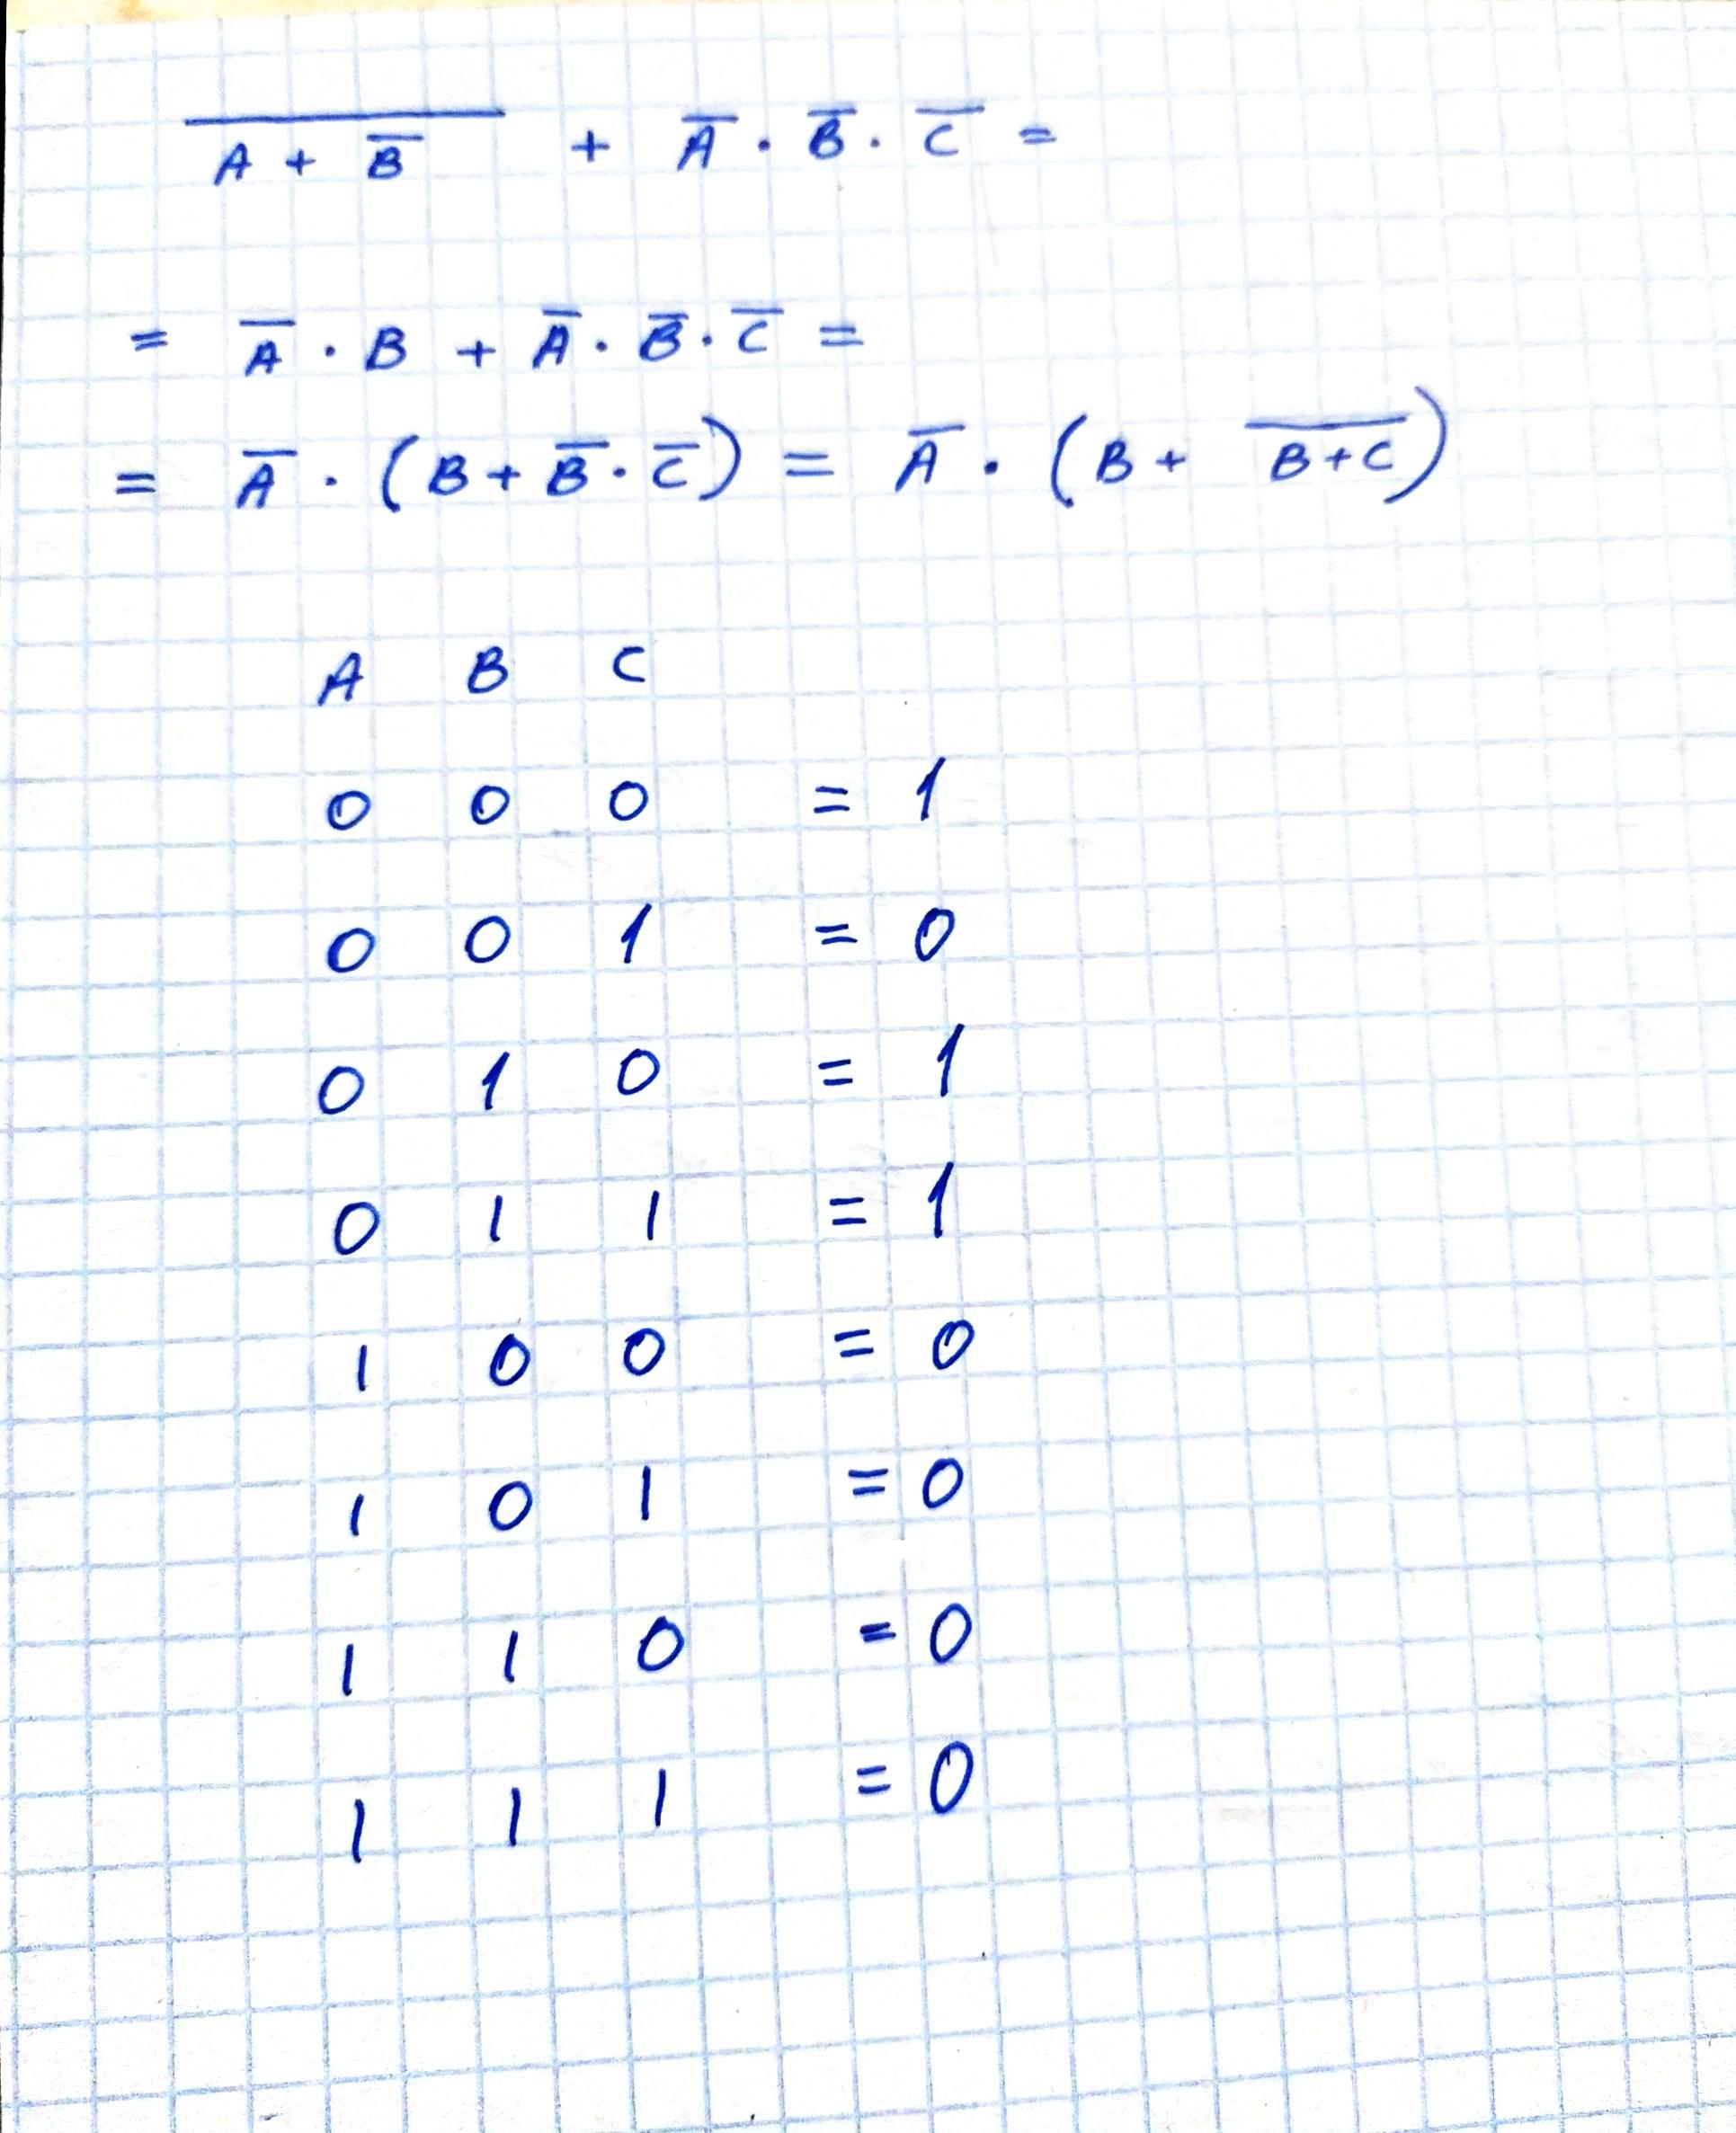 $\overline{A + \overline{B}} + \overline{A} \cdot \overline{B} \cdot \overline{C} =$
$= \overline{A} \cdot B + \overline{A} \cdot \overline{B} \cdot \overline{C} =$
$= \overline{A} \cdot (B + \overline{B} \cdot \overline{C}) = \overline{A} \cdot (B + \overline{B+C})$
A B C
0 0 0 = 1
0 0 1 = 0
0 1 0 = 1
0 1 1 = 1
1 0 0 = 0
1 0 1 = 0
1 1 0 = 0
1 1 1 = 0